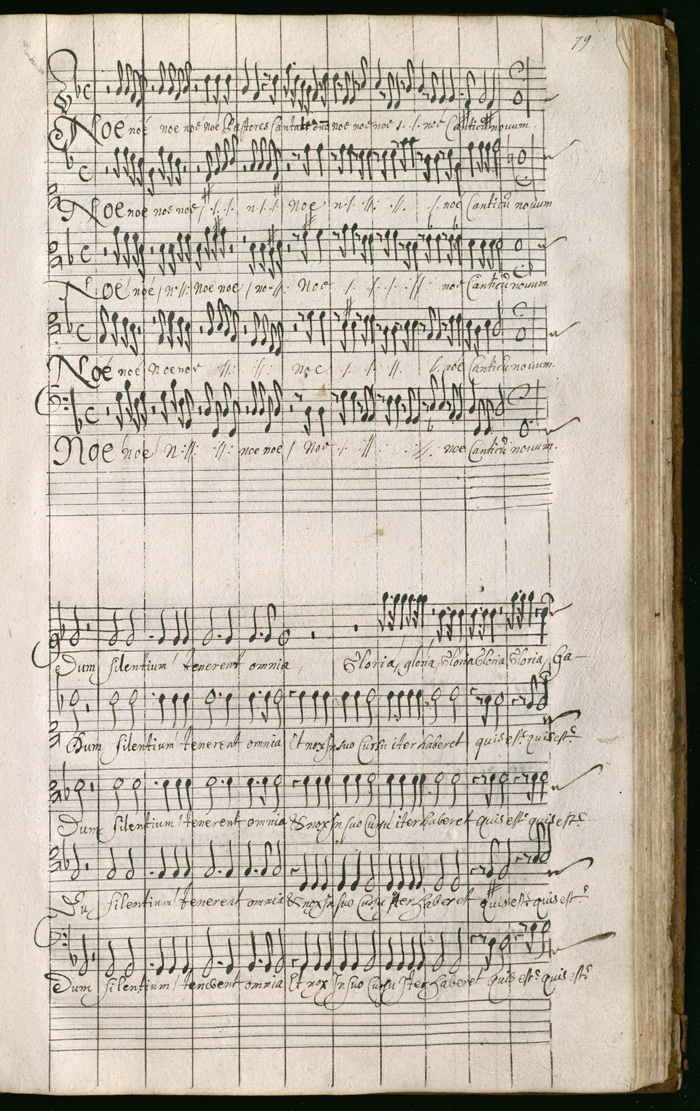 79
Noe noé noe noe noe Pastores Cantate dño noe noe noe :/: :/: noe Canticũ novum.
Noe noe noe noe / :/: :/: n :/: Noe n :/: :/: :/: noe Canticũ novum
Noe noé / n :/: Noe noe / no :/: Noe :/: :/: :/: noe Canticũ novum
Noé noé Noe noe :/: :/: noe :/: :/: :/: noé Canticũ novum.
Noe noe n :/: :/: noe noé / Noe :/: :/: :/: noe Canticũ novum.
Dum silentium tenerent omnia Gloria, gloria, Gloria Gloria, Gloria, Ga-
Dum silentium tenerent omnia Et nox In suo Cursu iter haberet quis est quis est
Dum silentium tenerent omnia & nox In suo Cursu iter haberet quis est quis est
Dũ silentium tenerent omnia & nox In suo Cursu Iter haberet quis est quis est
Dum silentium tenerent omnia Et nox In suo Cursu Iter haberet quis est quis est